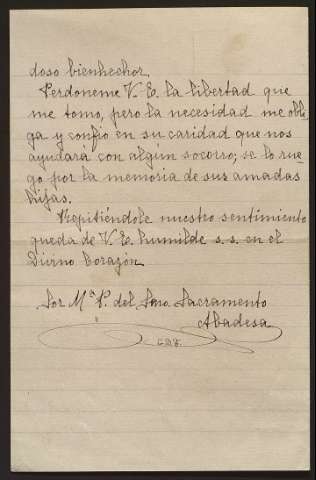 doso bienhechor.
Perdoneme V. E. la libertad que
me tomo, pero la necesidad me obli-
ga y confio en su caridad que nos
ayudará con algún socorro; se lo rue-
go por la memoria de sus amadas
hijas.
Repitiéndole nuestro sentimiento
queda de V. E. humilde s. s. en el
Divino Corazón
Sor Mª P. del Smo. Sacramento
Abadesa